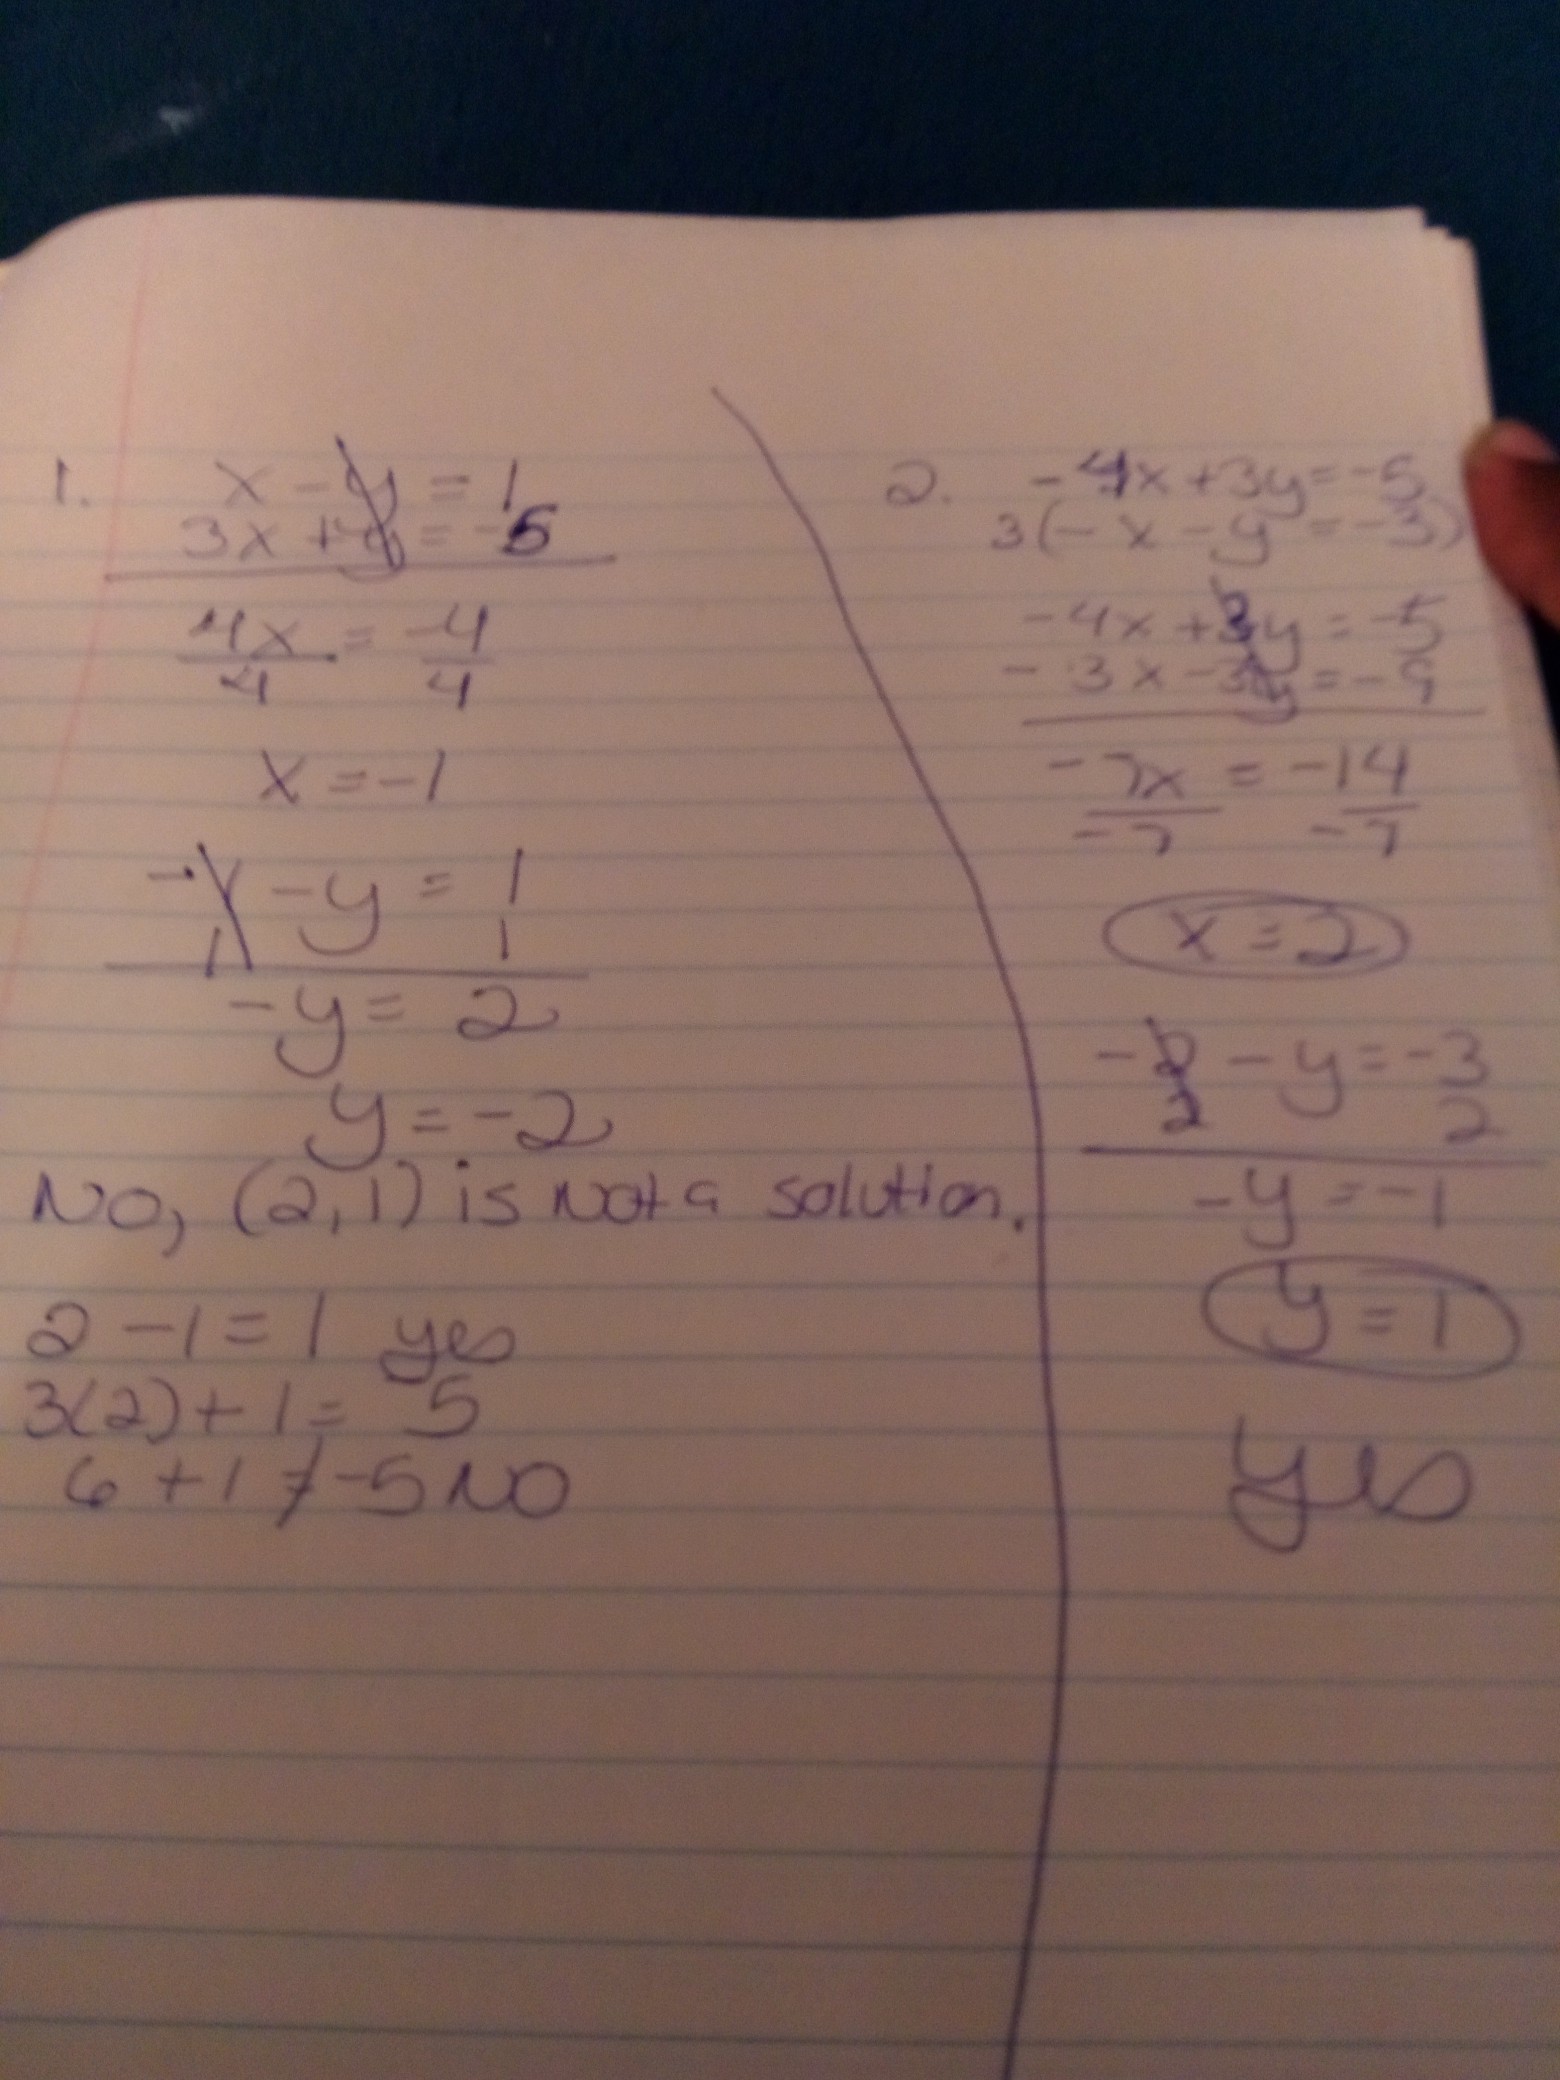 1. x - y = 1
3x + y = -5
4x = -4
4 4
x = -1
-1 - y = 1
1 1
-y = 2
y = -2
No, (2,1) is not a solution.
2 - 1 = 1 yes
3(2) + 1 = 5
6 + 1 ≠ -5 NO
2. -4x + 3y = -5
3(-x - y = -3)
-4x + 3y = -5
-3x - 3y = -9
-7x = -14
-7 -7
x = 2
-2 - y = -3
2 2
-y = -1
y = 1
yes